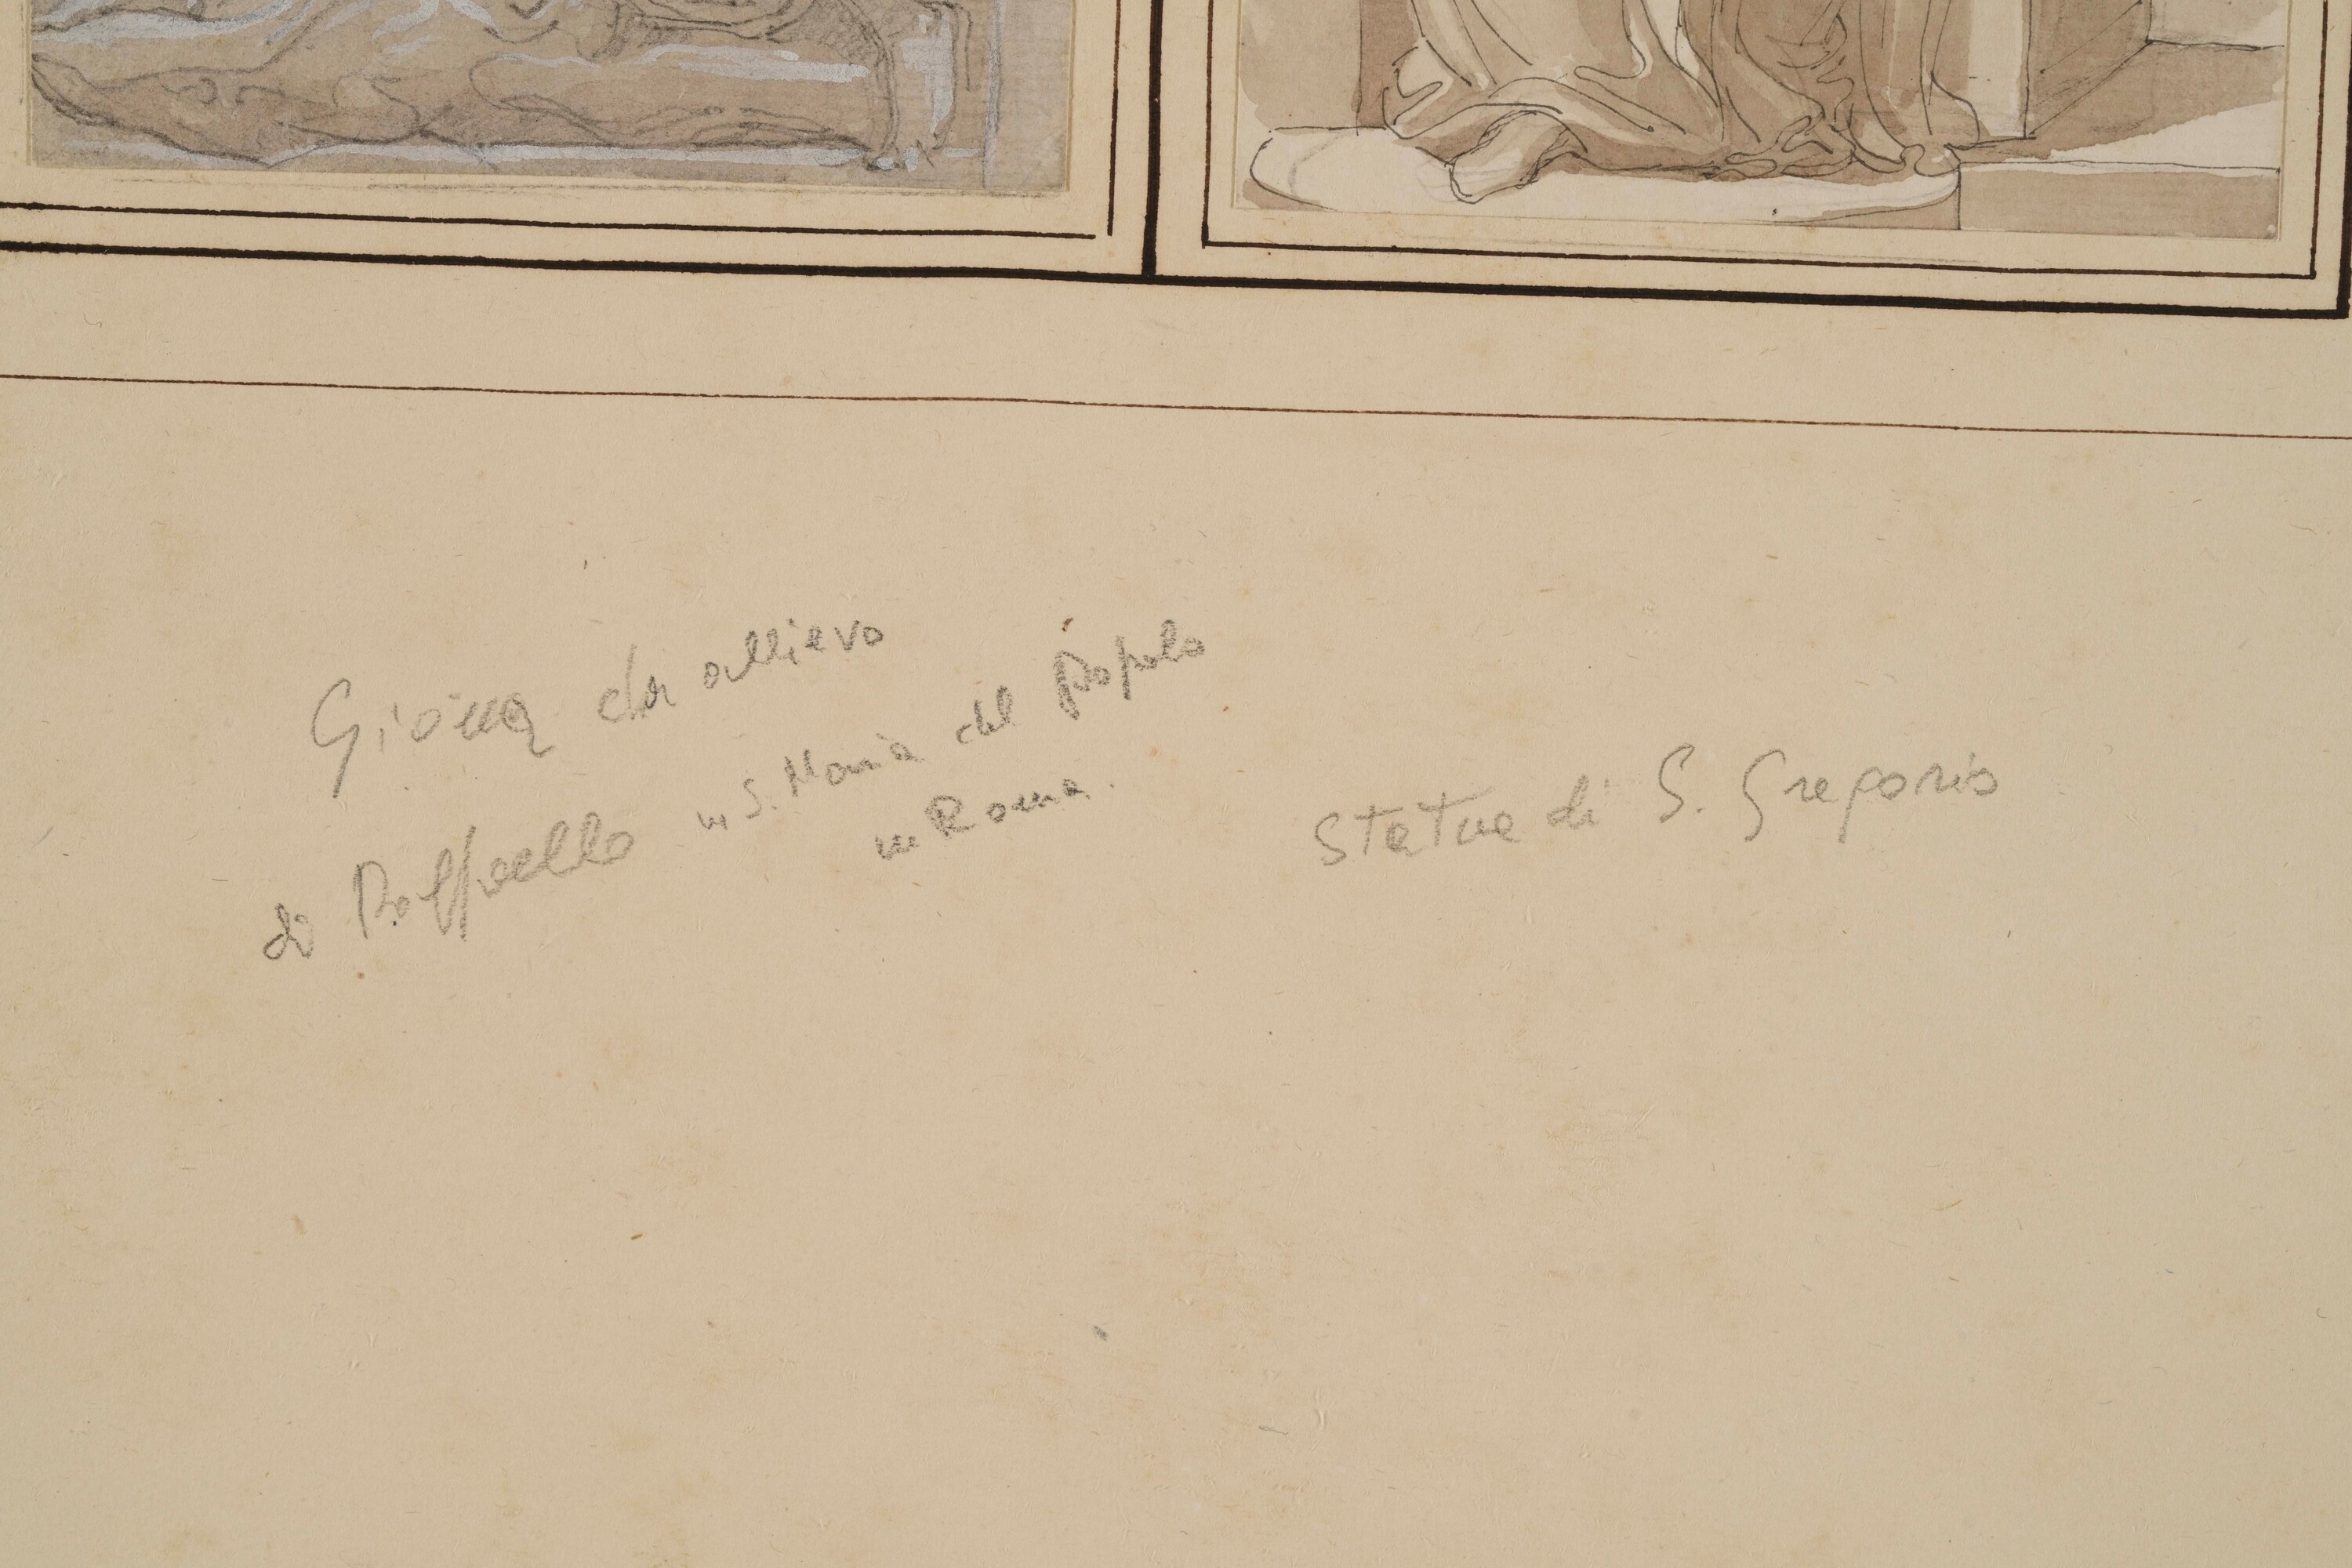 Giona da allievo
di Raffaello in S. Maria del popolo
in Roma.
Statua di S. Gregorio